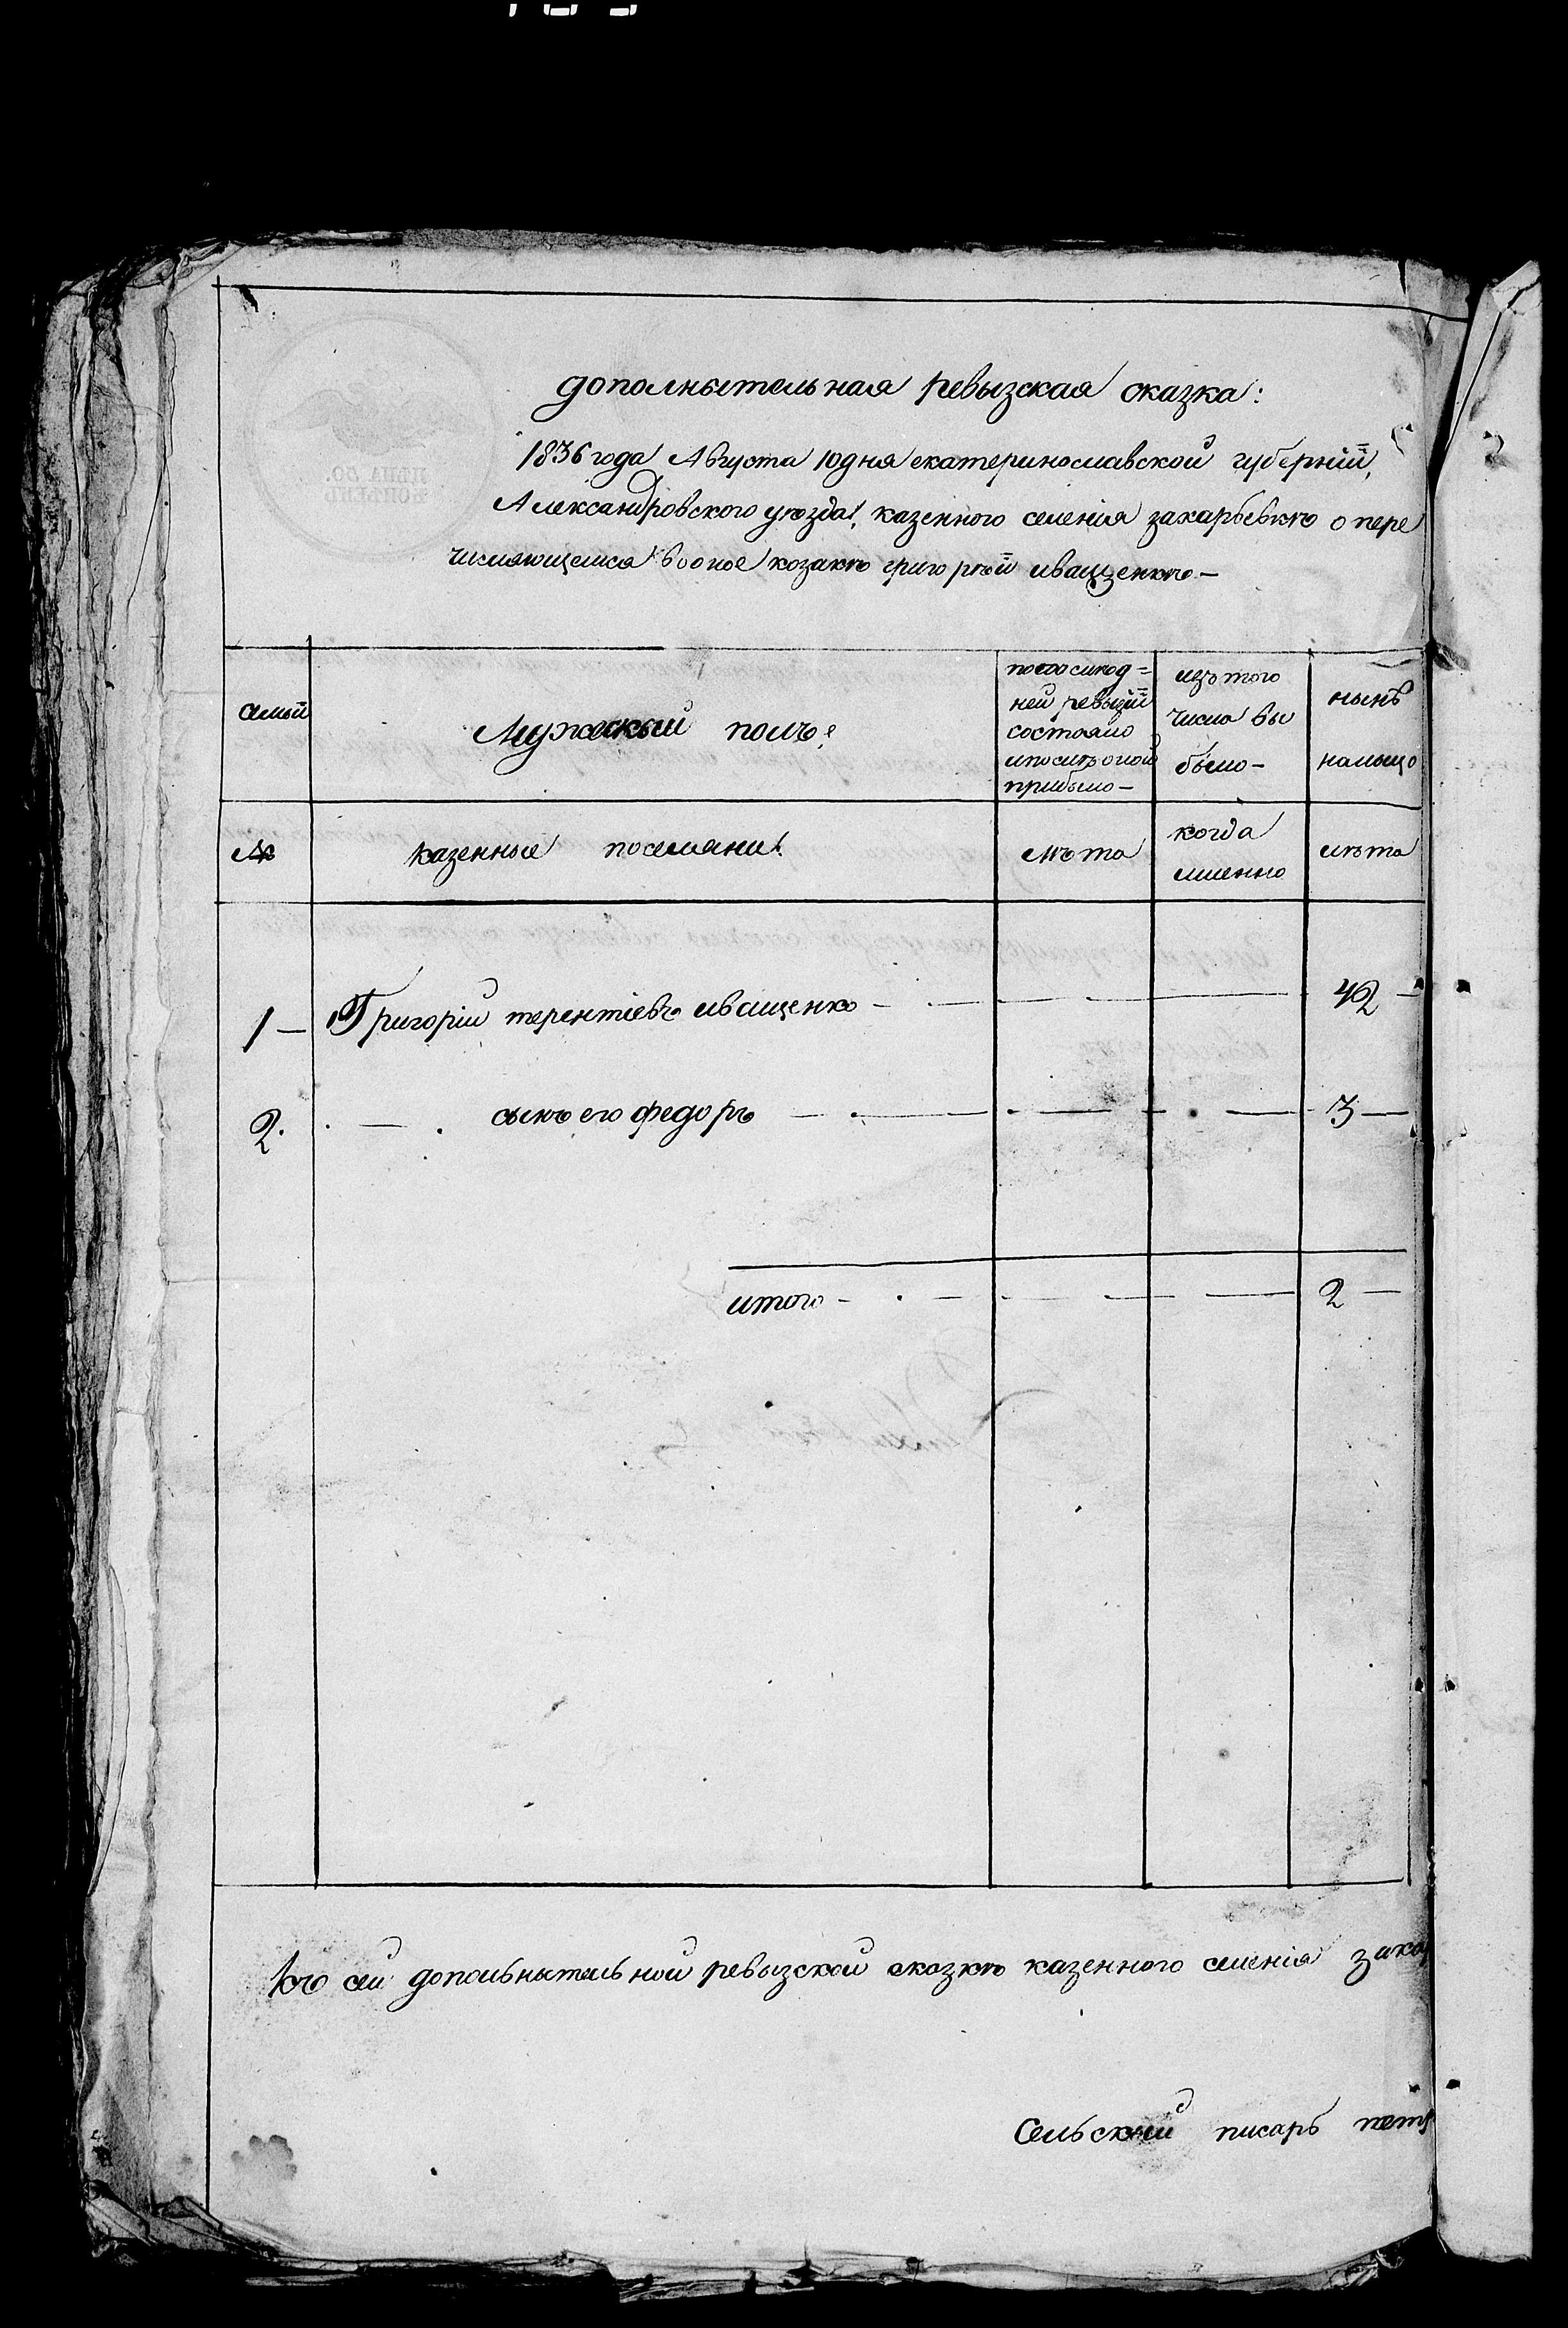 дополнытельная ревызская сказка:
1836 года Августа 10 дня екатеринославской губерніи,
Александровского уѣзда, казенного селенія захарьевкѣ о пере
числяющемся воное козакѣ григорѣи иващенкѣ —
семьи
Мужеский полъ
по последней = ней ревызіи состояло и после оной прибыло —
изъ того числа вы было —
нынѣ налыцо
№
казенные поселяни
лѣта
когда именно
лѣта
1 — Григорій терентіевъ иващенко — 42 —
2. сынъ его федоръ — 3 —
итого — 2 —
Къ сей допольнытельной ревызской сказкѣ казенного селенія заха
Сельский писарь петр
ЦѢНА 50.
КОПѢЕКЪ